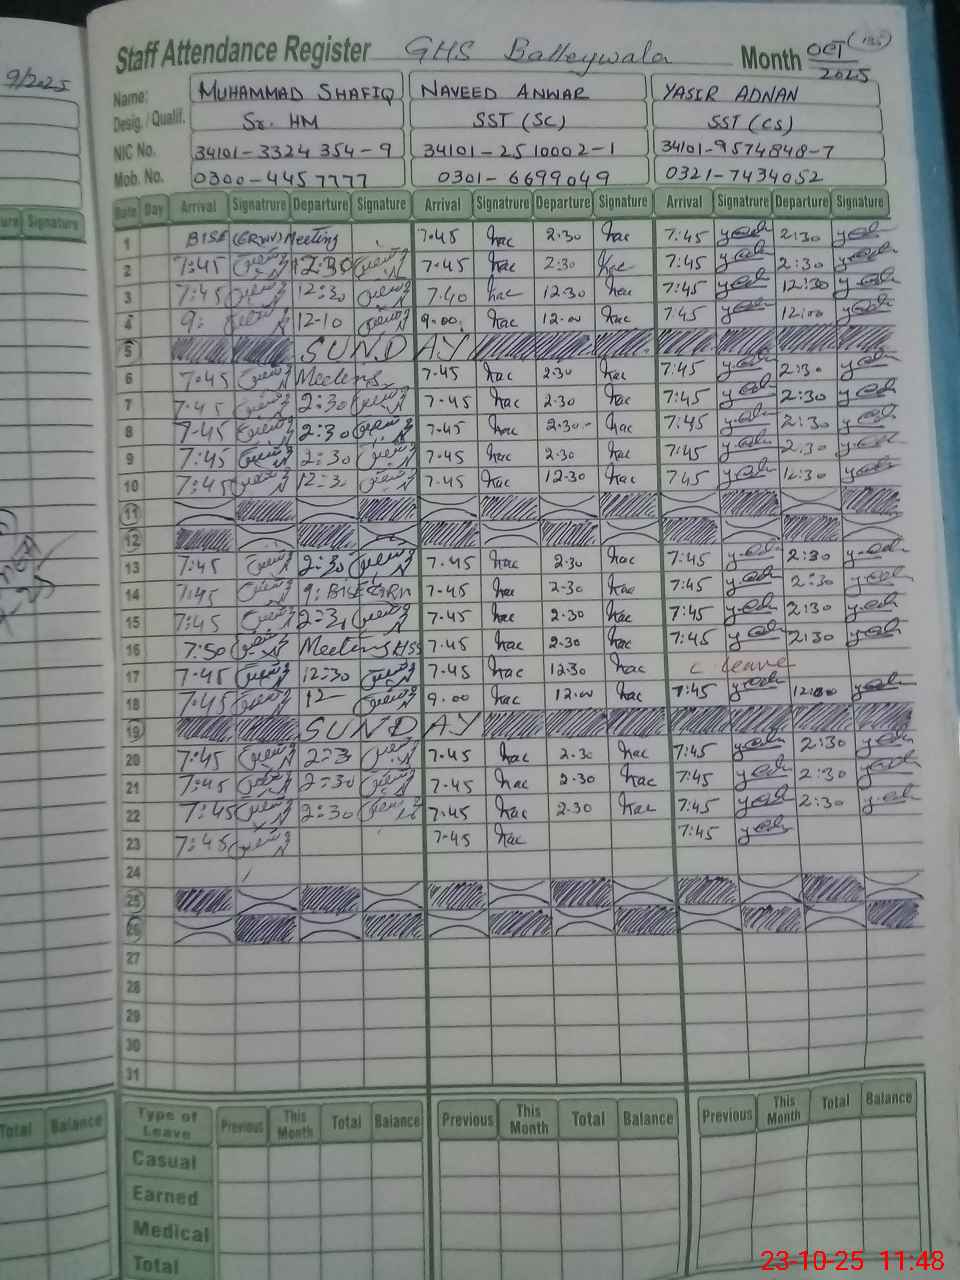 9/2025
Staff Attendance Register GHS Batteywala Month OCT 2025
Name: MUHAMMAD SHAFIQ NAVEED ANWAR YASIR ADNAN
Desig. / Qualif. Sr. HM SST (SC) SST (CS)
NIC No. 34101-3324354-9 34101-2510002-1 34101-9574848-7
Mob. No. 0300-4457777 0301-6699049 0321-7434052
Signature Date Day Arrival Signatrure Departure Signature Arrival Signatrure Departure Signature Arrival Signatrure Departure Signature
1 BISE (GRW) Meeting 7.45 2.30 7:45 2:30
2 7:45 12:30 7.45 2:30 7:45 2:30
3 7:45 12:30 7.40 12.30 7:45 12:30
4 9: 12-10 9.00 12.00 7:45 12:00
5 SUNDAY
6 7:45 Meeting 7.45 2.30 7:45 2:30
7 7.45 2:30 7.45 2.30 7:45 2:30
8 7.45 2:30 7.45 2.30 7:45 2:30
9 7:45 2:30 7.45 2.30 7:45 2:30
10 7:45 12:3 7.45 12.30 7:45 12:30
11
12
13 7:45 2:30 7.45 2.30 7:45 2:30
14 7:45 9: BISE GRW 7.45 2.30 7:45 2:30
15 7:45 2=3 7.45 2.30 7:45 2:30
16 7:50 Meeting HSS 7.45 2.30 7:45 2:30
17 7.45 12:30 7.45 12.30 c. leave
18 7:45 12- 9.00 12.00 7:45 12:00
19 SUNDAY
20 7:45 2=3 7.45 2.30 7:45 2:30
21 7:45 2:30 7.45 2.30 7:45 2:30
22 7:45 2:30 7.45 2.30 7:45 2:30
23 7:45 7.45 7:45
24
25
26
27
28
29
30
31
Total Balance Type of Leave Previous This Month Total Balance Previous This Month Total Balance Previous This Month Total Balance
Casual
Earned
Medical
Total
23-10-25 11:48